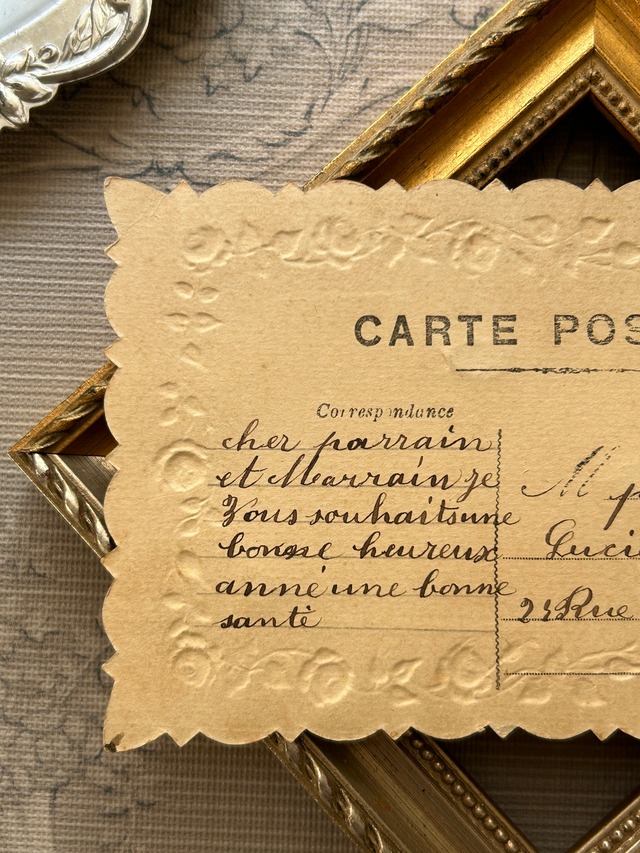 CARTE POS
Correspondance
cher parrain
et Marrain je
Vous souhaits une
bonne heureux
anné une bonne
santé
M
Luci
Rue